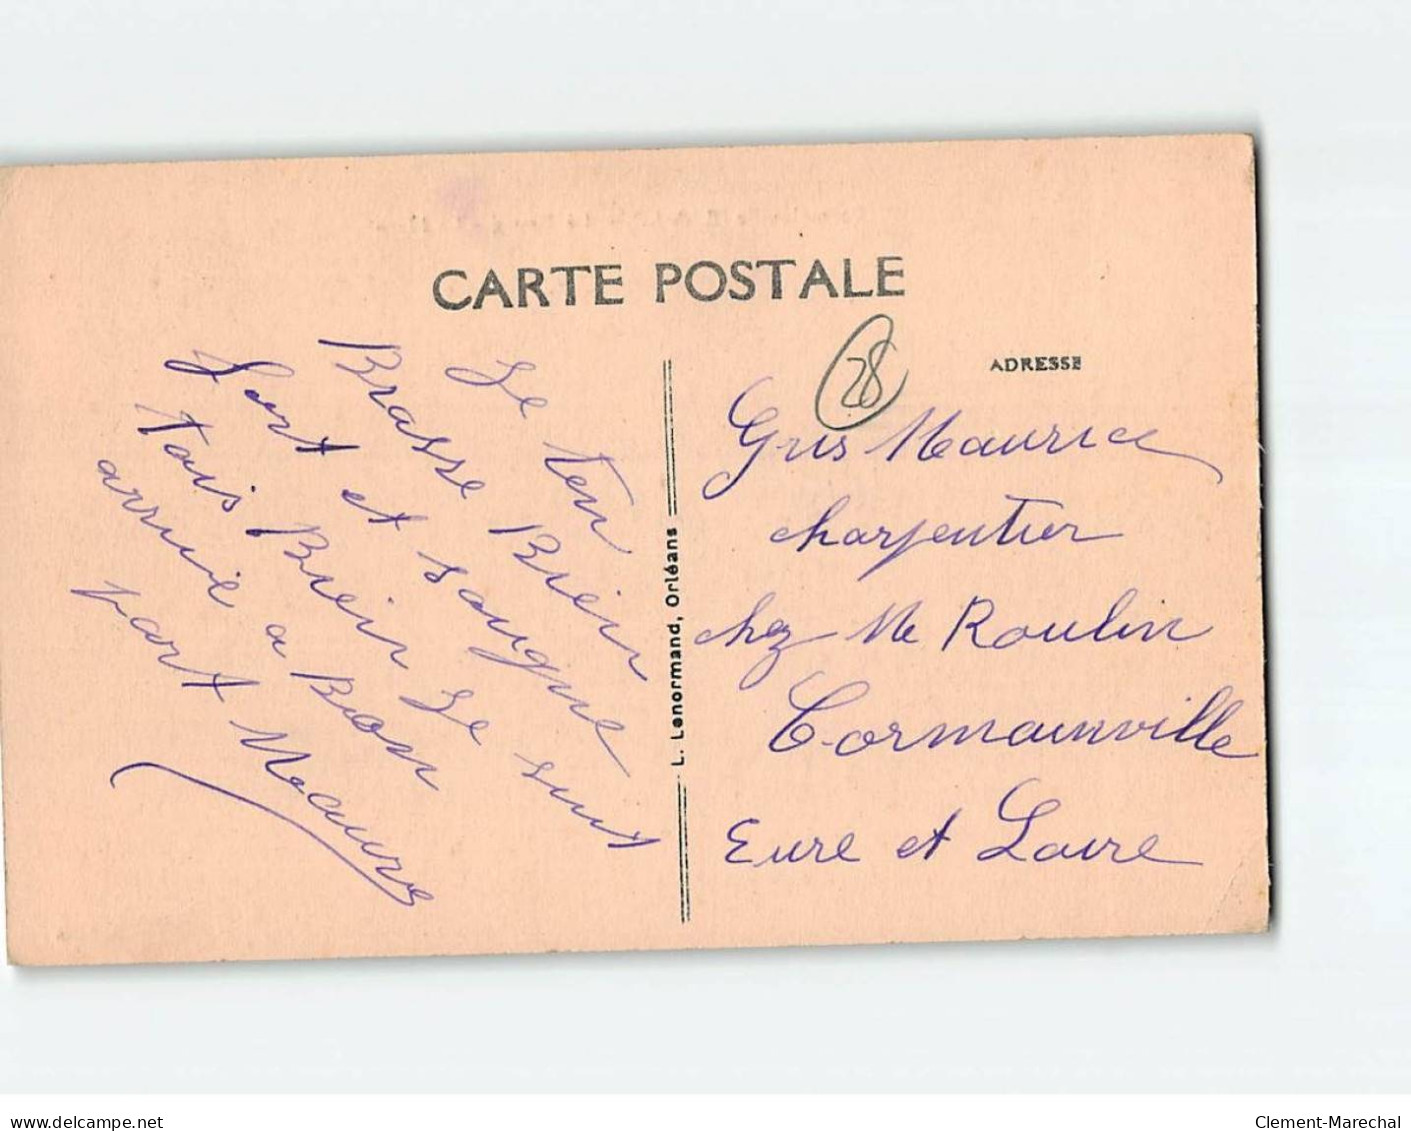 CARTE POSTALE
ADRESSE
28
Je ten
Brasse Bien
fort et
tais Bien Je suis
arrivé a Bon
port Maurice
L. Lenormand, Orléans
Gris Maurice
charpentier
chez Me Roulin
Cormainville
Eure et Loire
www.delcampe.net
Clement-Marechal